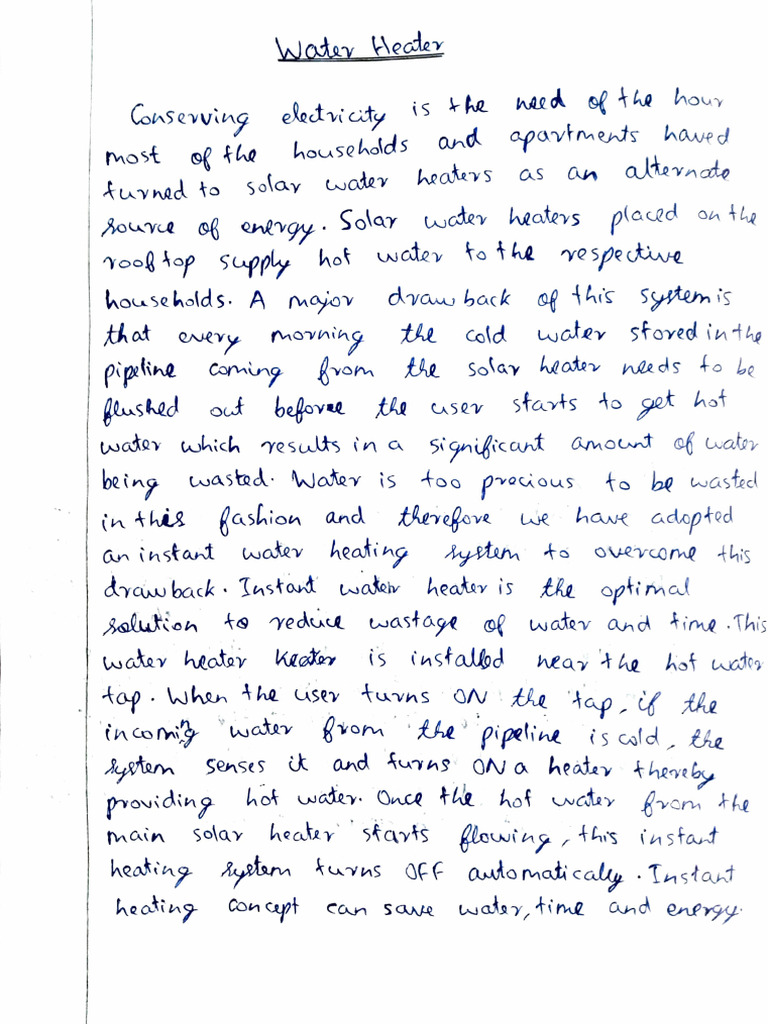 Water Heater
Conserving electricity is the need of the hour
most of the households and apartments haved
turned to solar water heaters as an alternate
source of energy. Solar water heaters placed on the
rooftop supply hot water to the respective
households. A major drawback of this system is
that every morning the cold water stored in the
pipeline coming from the solar heater needs to be
flushed out before the user starts to get hot
water which results in a significant amount of water
being wasted. Water is too precious to be wasted
in this fashion and therefore we have adopted
an instant water heating system to overcome this
drawback. Instant water heater is the optimal
solution to reduce wastage of water and time. This
water heater heater is installed near the hot water
tap. When the user turns ON the tap, if the
incoming water from the pipeline is cold, the
system senses it and turns ON a heater thereby
providing hot water. Once the hot water from the
main solar heater starts flowing, this instant
heating system turns OFF automatically. Instant
heating concept can save water, time and energy.